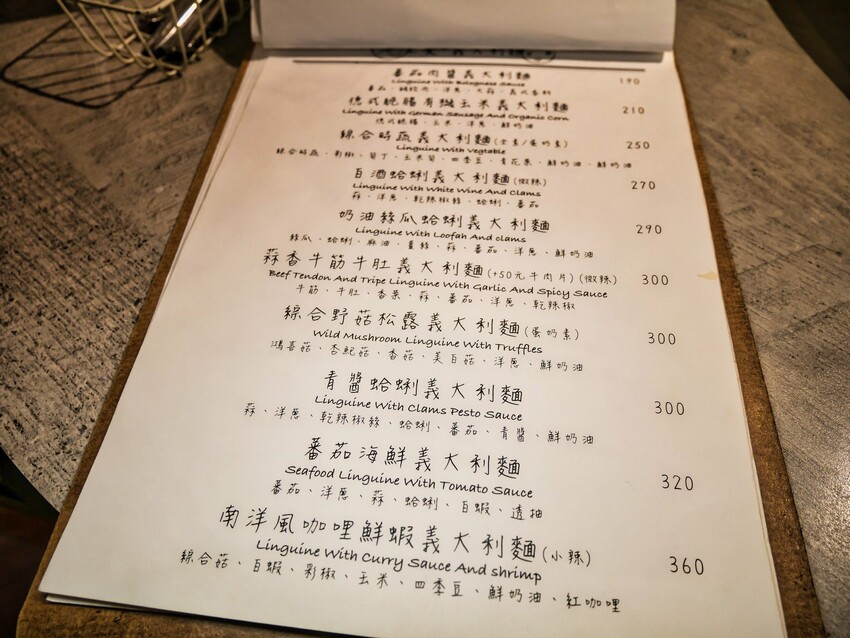 番茄肉醬義大利麵 190
Linguine With Bolognese Sauce
德式脆腸有機玉米義大利麵 210
Linguine With German Sausage And Organic Corn
德式脆腸、玉米、洋蔥、鮮奶油
綜合時蔬義大利麵(全素/蛋奶素) 250
Linguine With Vegtable
綜合時蔬、彩椒、筍丁、玉米筍、四季豆、青花菜、鮮奶油、鮮奶油
白酒蛤蜊義大利麵(微辣) 270
Linguine With White Wine And Clams
蒜、洋蔥、乾辣椒絲、蛤蜊、番茄
奶油絲瓜蛤蜊義大利麵 290
Linguine With Loofah And clams
絲瓜、蛤蜊、麻油、薑絲、蒜、番茄、洋蔥、鮮奶油
蒜香牛筋牛肚義大利麵(+50元牛肉片)(微辣) 300
Beef Tendon And Tripe Linguine With Garlic And Spicy Sauce
牛筋、牛肚、香菜、蒜、番茄、洋蔥、乾辣椒
綜合野菇松露義大利麵(蛋奶素) 300
Wild Mushroom Linguine With Truffles
鴻喜菇、杏鮑菇、香菇、美白菇、洋蔥、鮮奶油
青醬蛤蜊義大利麵 300
Linguine With Clams Pesto Sauce
蒜、洋蔥、乾辣椒絲、蛤蜊、番茄、青醬、鮮奶油
番茄海鮮義大利麵 320
Seafood Linguine With Tomato Sauce
番茄、洋蔥、蒜、蛤蜊、白蝦、透抽
南洋風咖哩鮮蝦義大利麵(小辣) 360
Linguine With Curry Sauce And shrimp
綜合菇、白蝦、彩椒、玉米、四季豆、鮮奶油、紅咖哩